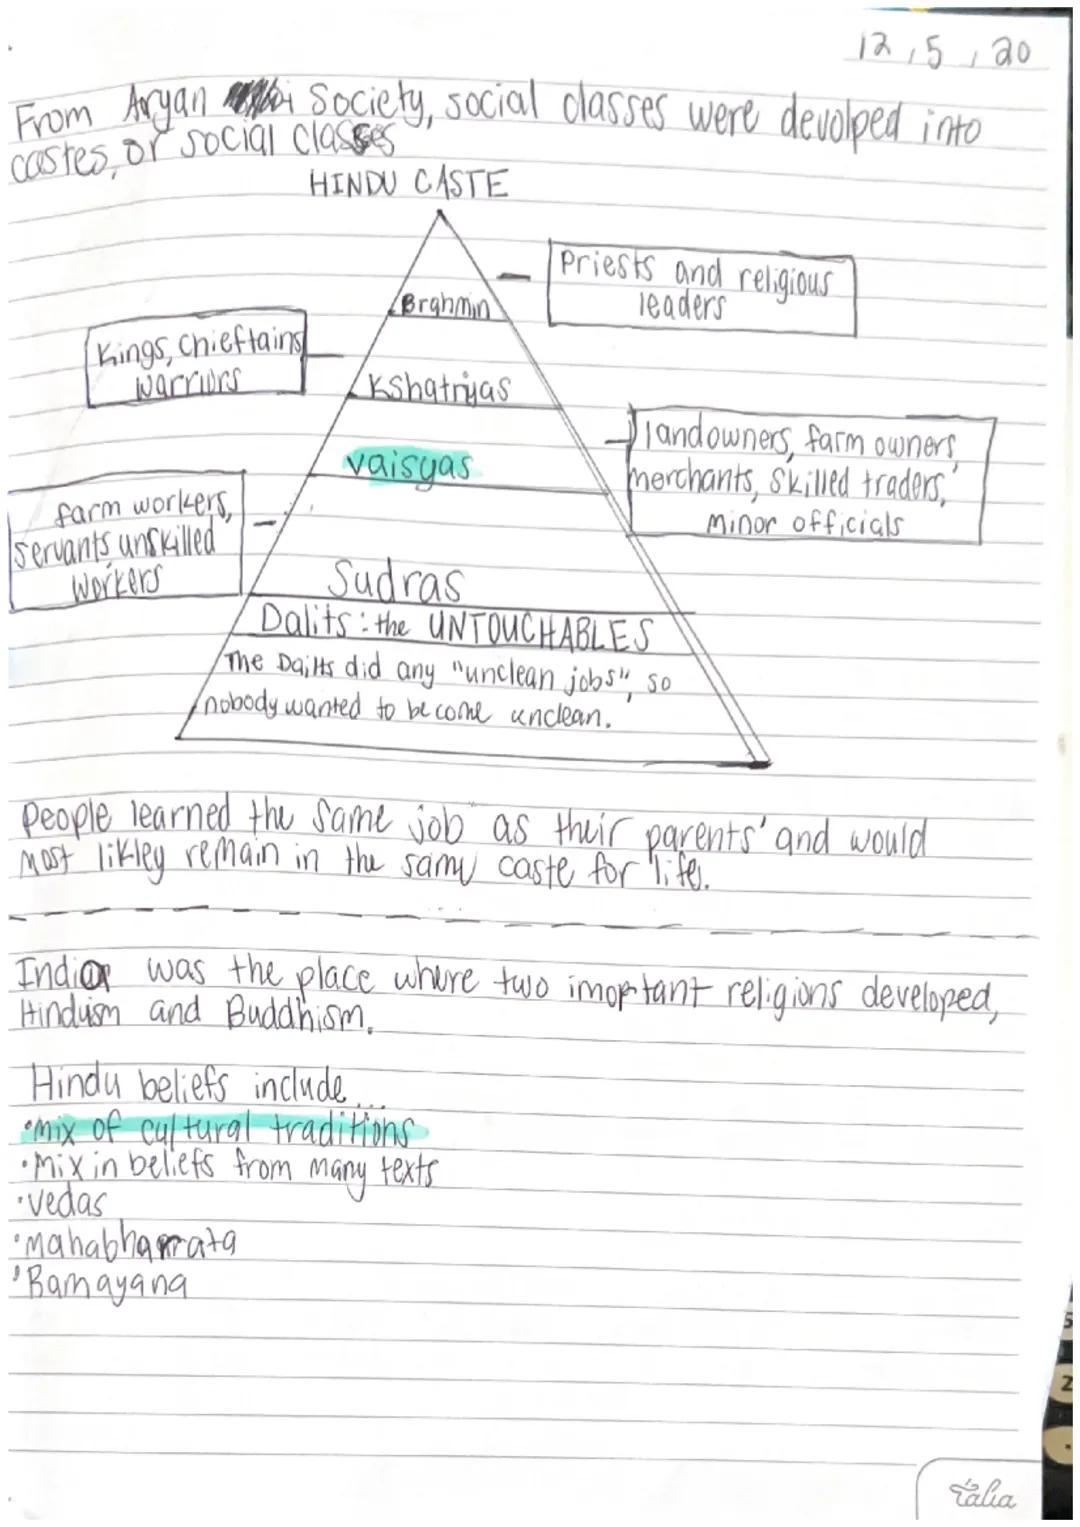 12,5,20
From Aryan Society, social classes were devolped into
castes, or social classes
HINDU CASTE
Priests and religious
leaders
Brahmin
Kings, chieftains
warriors
Kshatriyas
landowners, farm owners,
merchants, skilled traders,
minor officials
vaisyas
farm workers,
servants unskilled
workers
Sudras
Dalits: the UNTOUCHABLES
The Dailts did any "unclean jobs", so
nobody wanted to become unclean.
People learned the same job as their parents' and would
most likley remain in the same caste for life.
India was the place where two imoptant religions developed,
Hinduism and Buddhism.
Hindu beliefs include...
•mix of cultural traditions
•Mix in beliefs from many texts
•vedas
•Mahabharata
•Ramayana
talia